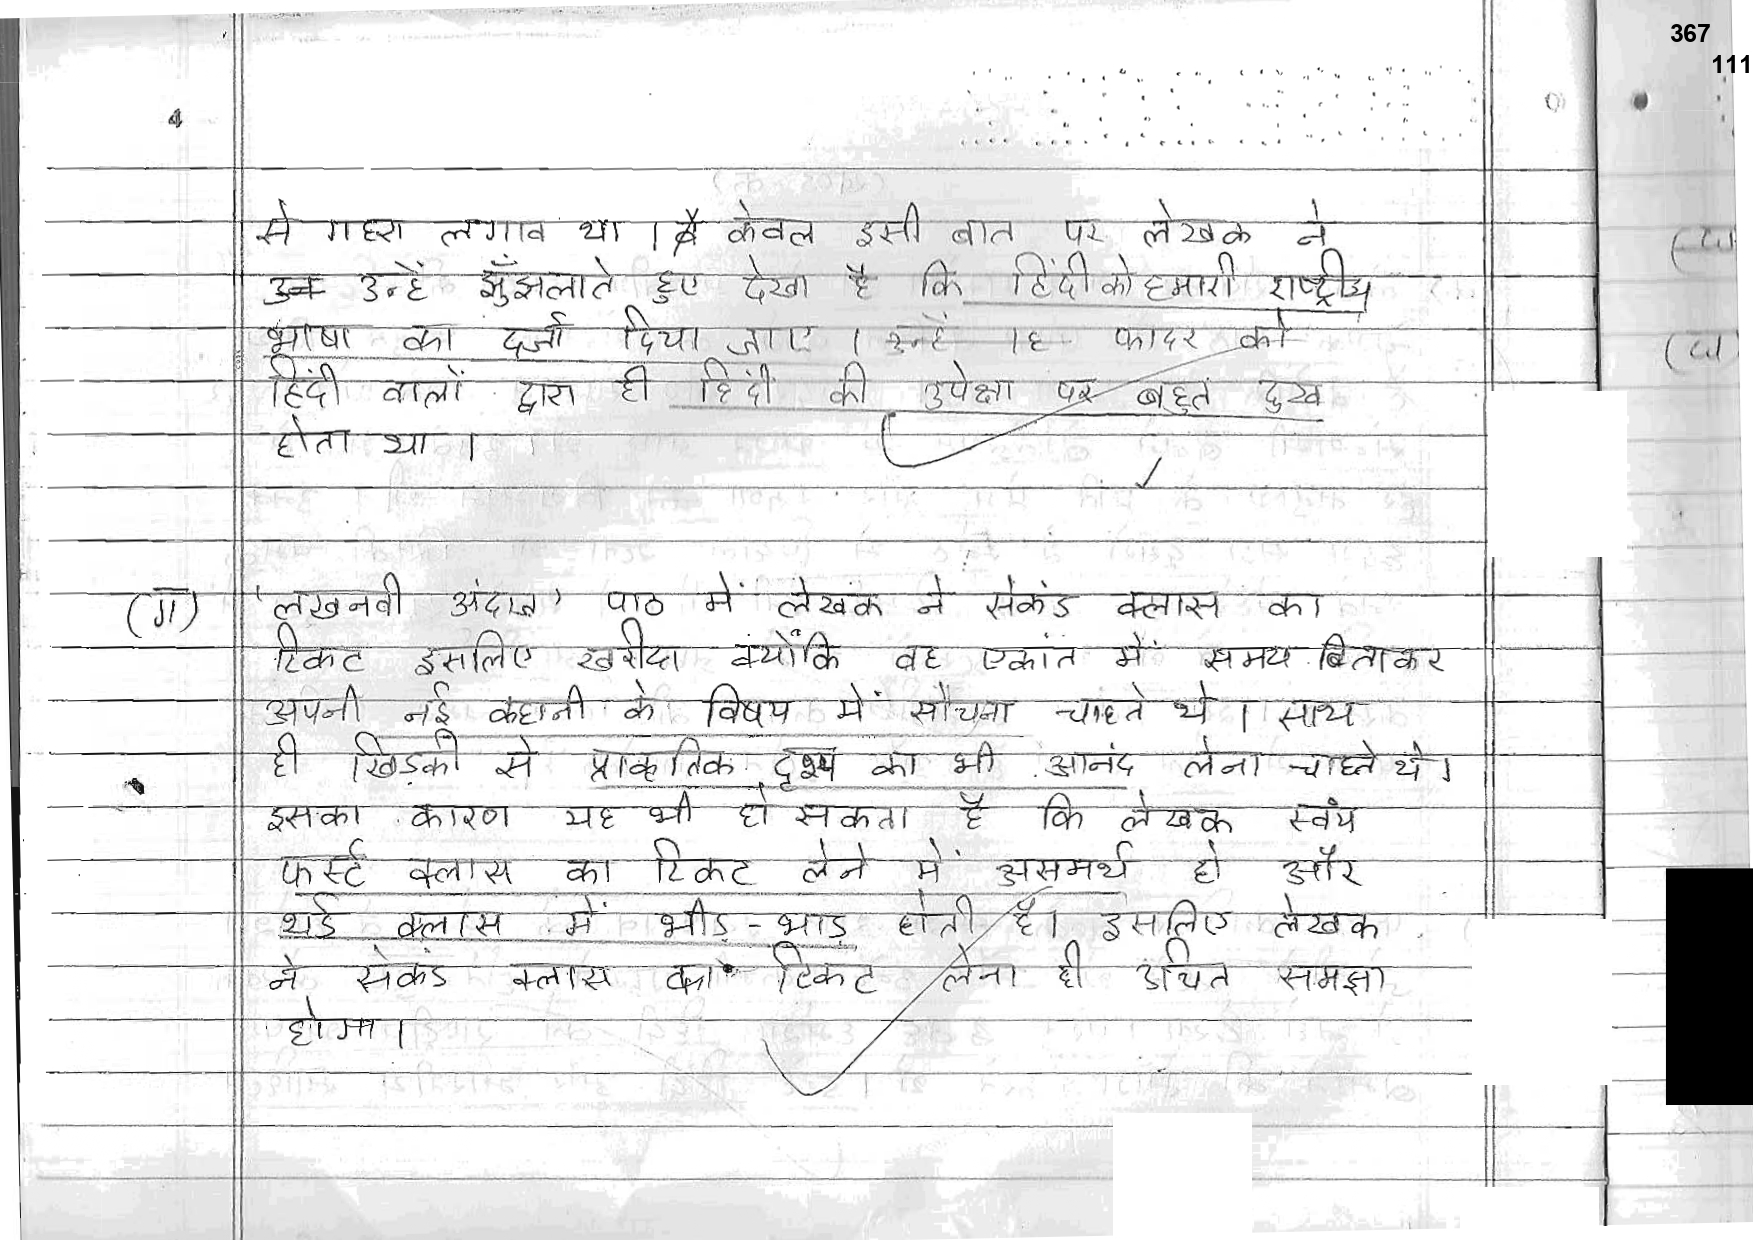 367
111
4
से गहरा लगाव था । केवल इसी बात पर लेखक ने
उन्हें झुँझलाते हुए देखा है कि हिंदी को हमारी राष्ट्रीय
भाषा का दर्जा दिया जाए । फादर को
हिंदी वालों द्वारा ही हिंदी की उपेक्षा पर बहुत दुख
होता था ।
(ग) 'लखनवी अंदाज़' पाठ में लेखक ने सेकंड क्लास का
टिकट इसलिए खरीदा क्योंकि वह एकांत में समय बिताकर
अपनी नई कहानी के विषय में सोचना चाहते थे । साथ
ही खिड़की से प्राकृतिक दृश्य का भी आनंद लेना चाहते थे ।
इसका कारण यह भी हो सकता है कि लेखक स्वंय
फर्स्ट क्लास का टिकट लेने में असमर्थ हो और
थर्ड क्लास में भीड़ - भाड़ होती है। इसलिए लेखक
ने सेकंड क्लास का टिकट लेना ही उचित समझा
होगा ।